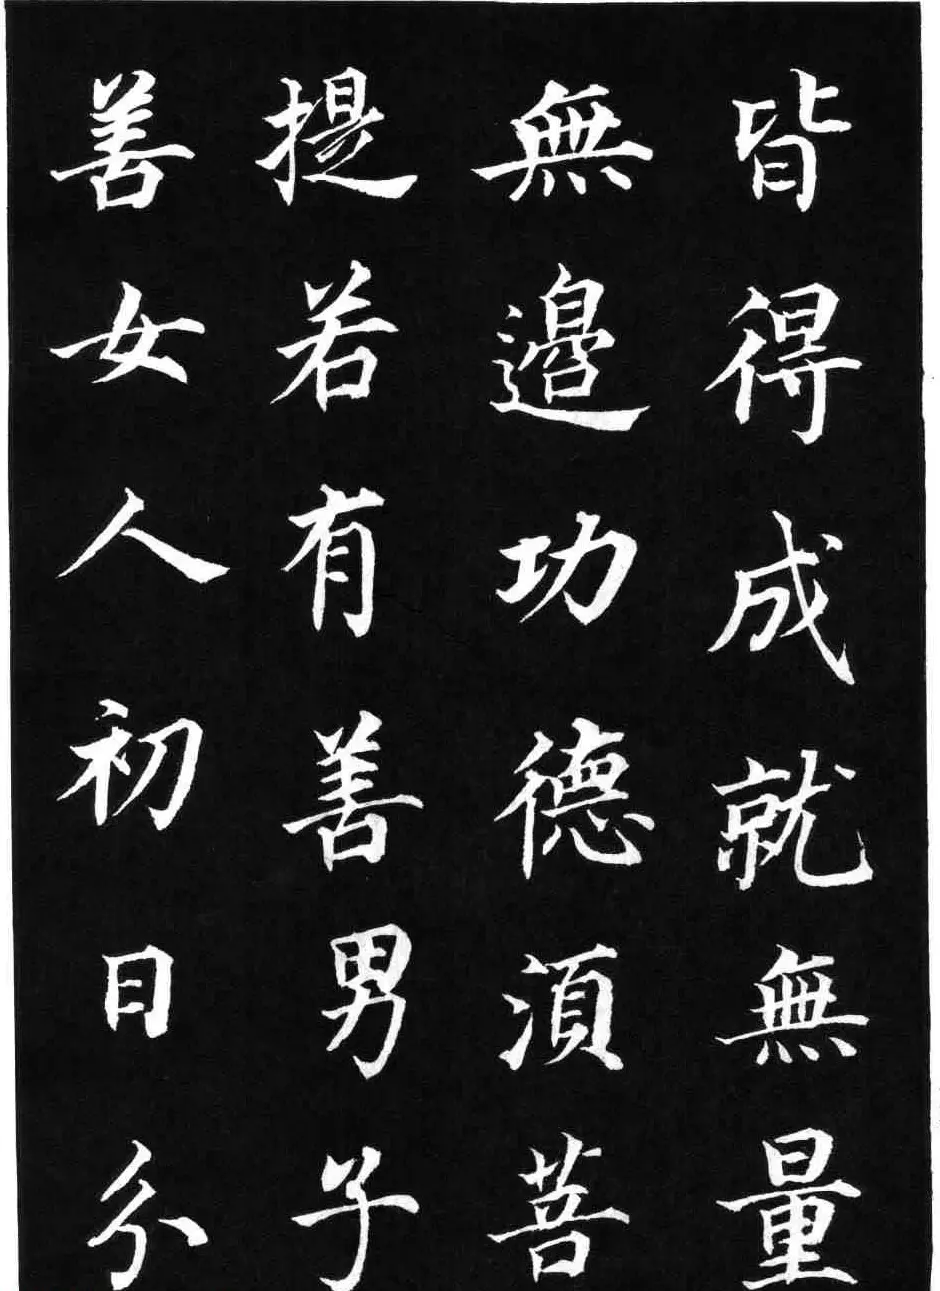 皆得成就無量
無邊功德湏菩
提若有善男子
善女人初日分